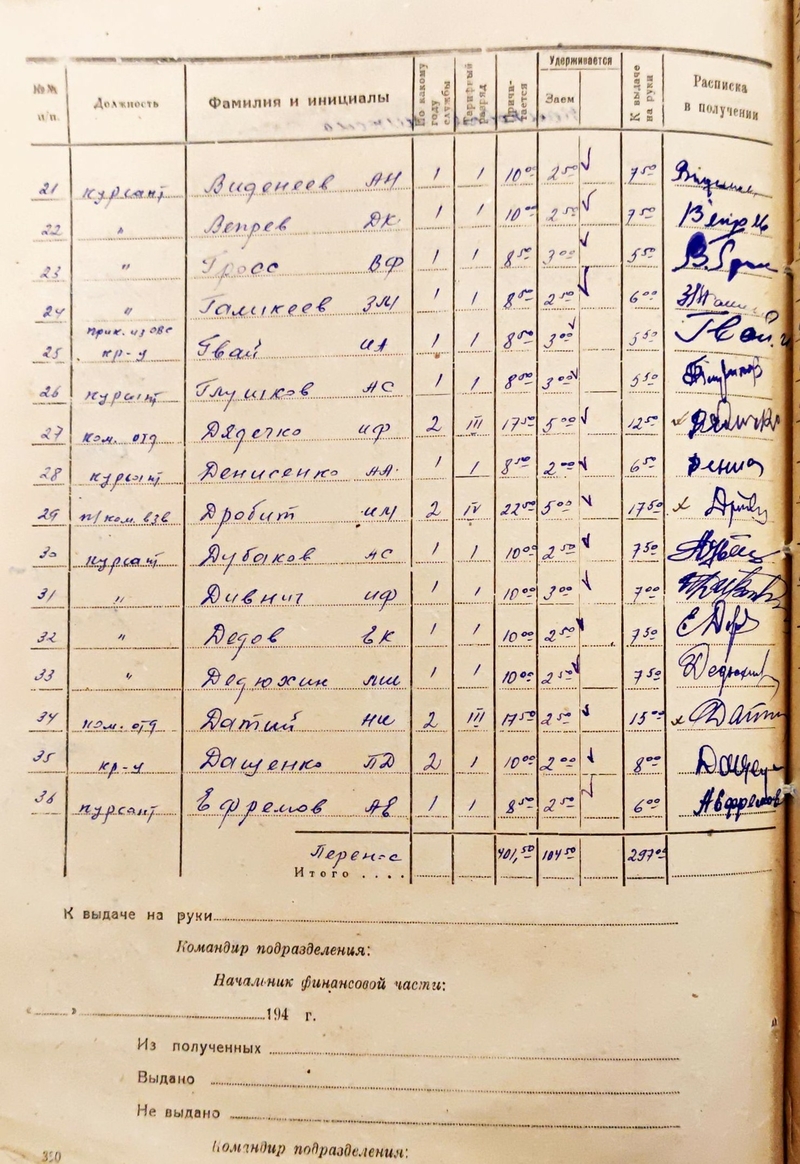 №№ п/п. Должность Фамилия и инициалы По какому году службы Тарифный разряд Причитается Удерживается Заем К выдаче на руки Расписка в получении
21 курсант Виденеев АН 1 1 10 00 2 50 7 50
22 " Вепрев ДК 1 1 10 00 2 50 7 50 Вепрев
23 " Гросс ВФ 1 1 8 50 3 00 5 50
24 " Галикеев ЗМ 1 1 8 50 2 50 6 00
25 прик. из ОВС кр-у Гвай ИА 1 1 8 50 3 00 5 50 Гвай
26 курсант Глушков АС 1 1 8 50 3 00 5 50
27 ком. отд Дядечко ИФ 2 III 17 50 5 00 12 50
28 курсант Денисенко АА 1 1 8 50 2 00 6 50 Денис
29 п/ком. взв Дробит ИМ 2 IV 22 50 5 00 17 50
30 курсант Дубаков АС 1 1 10 00 2 50 7 50
31 " Дивнич ИФ 1 1 10 00 3 00 7 00
32 " Дедов ЕК 1 1 10 00 2 50 7 50
33 " Дедюхин МИ 1 1 10 00 2 50 7 50 Дедюхин
34 ком. отд Датий НИ 2 III 17 50 2 50 15 00
35 кр-у Дащенко ПД 2 1 10 00 2 00 8 00
36 курсант Ефремов АВ 1 1 8 50 2 50 6 00 АВфремов
Перен-с 401,50 104 50 297 00
Итого ....
К выдаче на руки
Командир подразделения:
Начальник финансовой части:
« » 194 г.
Из полученных
Выдано
Не выдано
Командир подразделения: